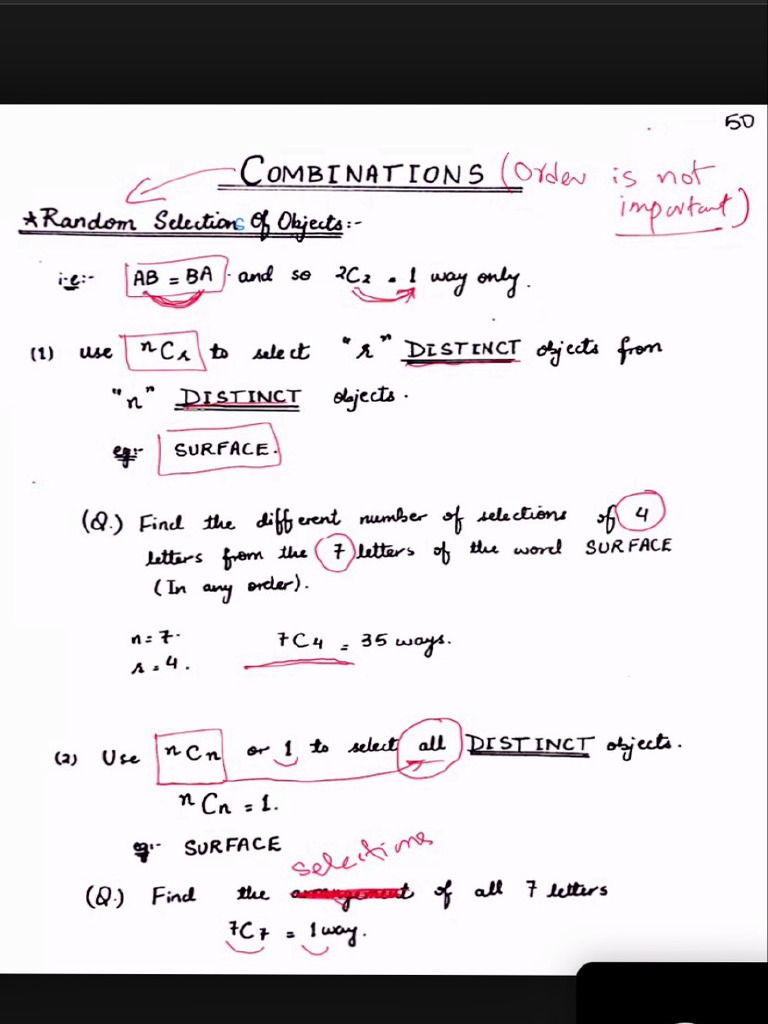 50
COMBINATIONS (Order is not important)
*Random Selections Of Objects:-
i.e:- AB = BA and so ²C₂ = 1 way only.
(1) use ⁿCᵣ to select "r" DISTINCT objects from
"n" DISTINCT objects.
eg:- SURFACE.
(Q.) Find the different number of selections of 4
letters from the 7 letters of the word SURFACE
(In any order).
n=7. 7C4 = 35 ways.
r=4.
(2) Use ⁿCn or 1 to select all DISTINCT objects.
ⁿCn = 1.
eg:- SURFACE
selections
(Q.) Find the arrangement of all 7 letters
7C7 = 1 way.